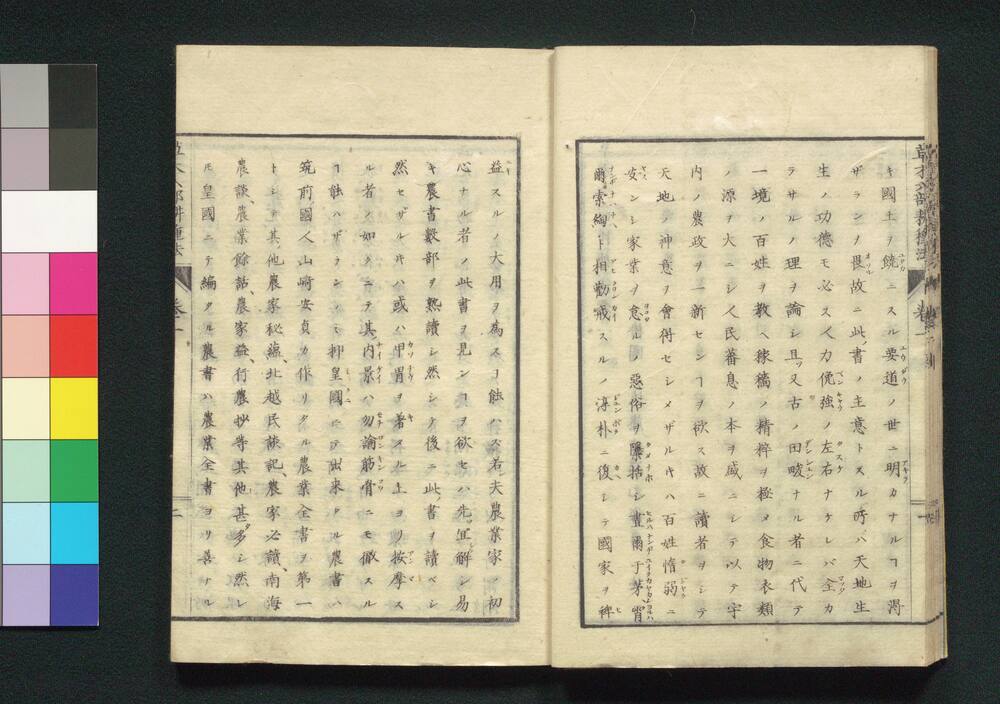 キ國土ヲ饒ニスル要道ノ世ニ明カナルヿヲ得
ザランヿヲ畏故ニ此ノ書ノ主意トスル所ハ天地生
生ノ功德モ必ス人力俛強ノ左右ナケレバ全カ
ラサルノ理ヲ論シ且ツ又古ノ田畯ナル者ニ代テ
一境ノ百姓ヲ教ヘ稼穡ノ精粹ヲ極メ食物衣類
ノ源ヲ大ニシ人民蕃息ノ本ヲ盛ニシテ以テ宇
內ノ農政ヲ一新センヿヲ欲ス故ニ讀者ヲシテ
天地ノ神意ヲ會得セシメザルキハ百姓惰弱ニ
安ンシ家業ヲ怠ルノ惡俗ヲ檃括シ晝爾于茅宵
爾索綯ト相勸戒スルノ淳朴ニ復シテ國家ヲ裨
益スルノ大用ヲ為スヿ能ハズ若夫農業家ノ初
心ナル者ノ此書ヲ見ンヿヲ欲セハ先ツ宜解シ易
キ農書數部ヲ熟讀シ然シテ後ニ此ノ書ヲ讀ベシ
然セザルキハ或ハ甲冑ヲ著スル上ヨリ按摩ス
ル者ノ如クニテ其內景ハ勿論筋骨ニモ徹スル
ヿ能ハザランノミ抑皇國ニテ出來タル農書ハ
筑前國人山崎安貞カ作リタル農業全書ヲ第一
トシテ其他農家秘蘊、北越民談記、農家必讀、南海
農談、農業餘話、農家益、行農抄等其他甚タ多シ然レ
モ皇國ニテ編タル農書ハ農業全書ヨリ善ナル
草木六部耕種法
卷一
二